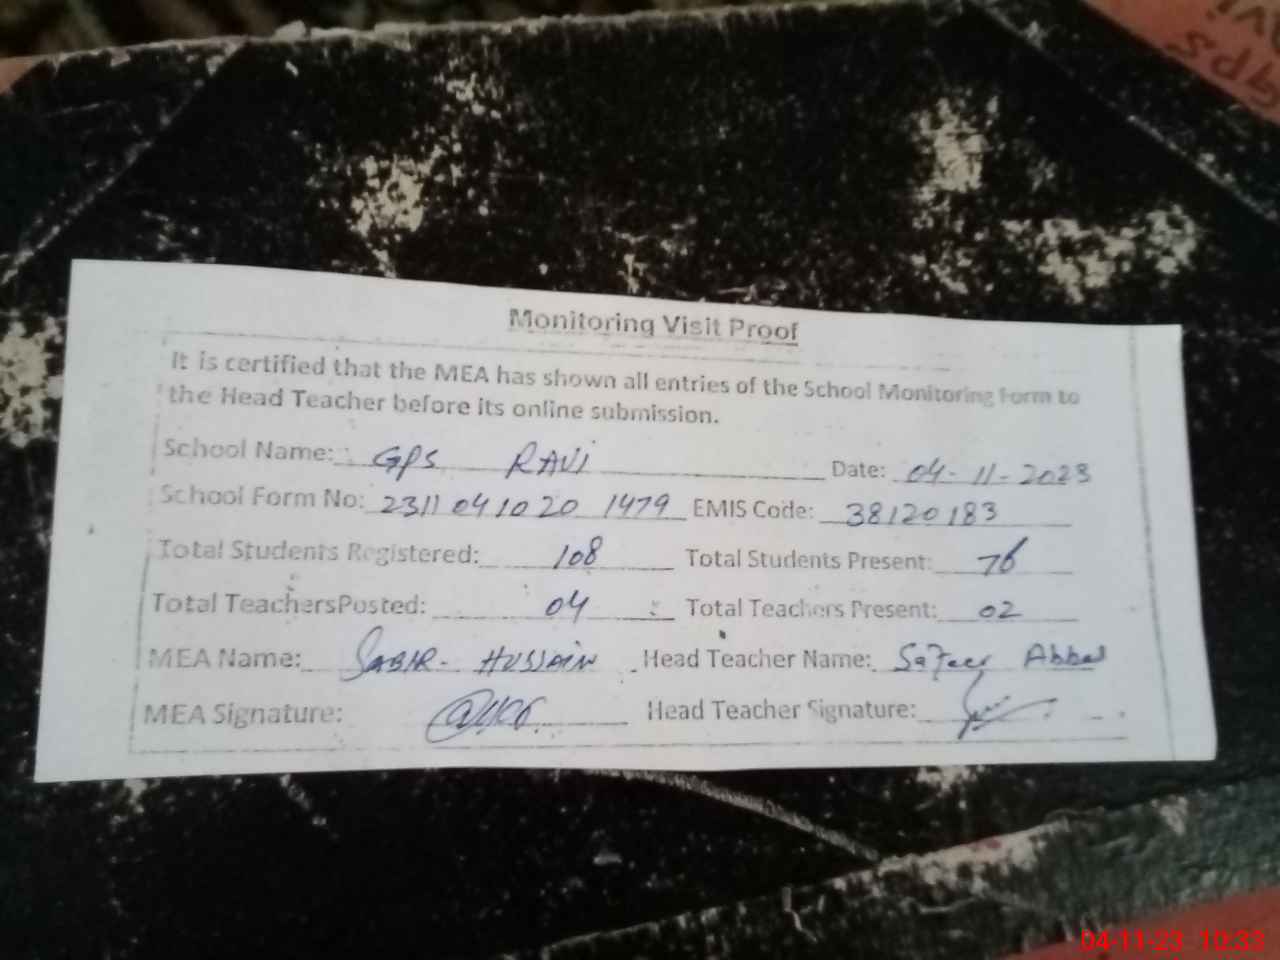 GPS
Monitoring Visit Proof
It is certified that the MEA has shown all entries of the School Monitoring Form to
the Head Teacher before its online submission.
School Name: GPS RAVI Date: 04-11-2023
School Form No: 2311 04 10 20 1479 EMIS Code: 38120183
Total Students Registered: 108 Total Students Present: 76
Total TeachersPosted: 04 Total Teachers Present: 02
MEA Name: SABIR- HUSSAIN Head Teacher Name: Safeer Abbas
MEA Signature: Head Teacher Signature:
04-11-23 10:33